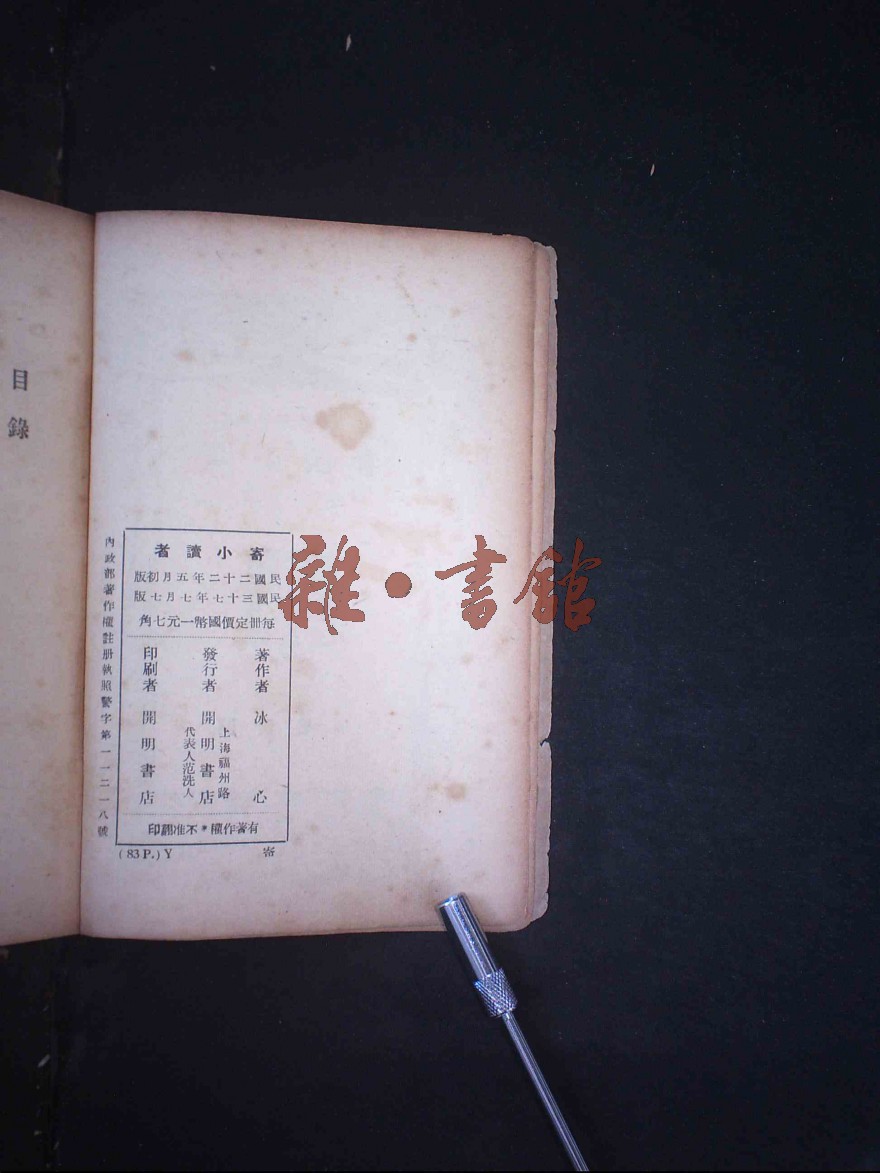 目錄
寄小讀者
民國二十二年五月初版
民國三十七年七月七版
每冊定價國幣一元七角
著作者 冰心
發行者 開明書店
上海福州路
代表人范洗人
印刷者 開明書店
有著作權*不准翻印
內政部著作權註册執照警字第一一二一八號
(83 P.) Y
寄
雜·書館